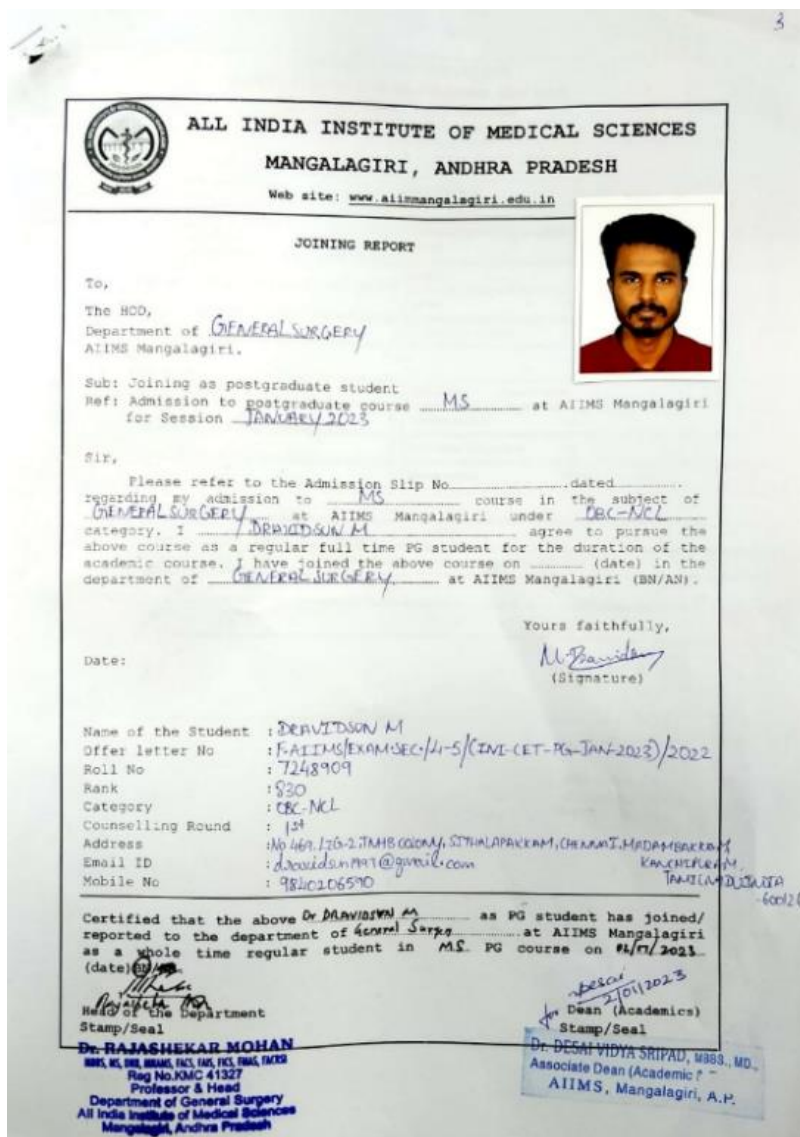 3
ALL INDIA INSTITUTE OF MEDICAL SCIENCES
MANGALAGIRI, ANDHRA PRADESH
Web site: www.aiimmangalagiri.edu.in
JOINING REPORT
To,
The HOD,
Department of GENERAL SURGERY
AIIMS Mangalagiri.
Sub: Joining as postgraduate student
Ref: Admission to postgraduate course MS at AIIMS Mangalagiri
for Session JANUARY 2023
Sir,
Please refer to the Admission Slip No..............dated...........
regarding my admission to MS course in the subject of
GENERAL SURGERY at AIIMS Mangalagiri under OBC-NCL
category. I DRAVIDSON M agree to pursue the
above course as a regular full time PG student for the duration of the
academic course. I have joined the above course on ........... (date) in the
department of GENERAL SURGERY at AIIMS Mangalagiri (BN/AN).
Yours faithfully,
Date:
(Signature)
Name of the Student : DRAVIDSON M
Offer letter No : F.AIIMS/EXAM.SEC./4-5/(INI-CET-PG-JAN-2023)/2022
Roll No : 7248909
Rank : 830
Category : OBC-NCL
Counselling Round : 1st
Address : No 469, LIG-2, TNHB COLONY, SITHALAPAKKAM, CHENNAI, MADAMBAKKAM
KANCHIPURAM,
Email ID : @gmail.com
Mobile No : 9840206590
Certified that the above Dr DRAVIDSON M as PG student has joined/
reported to the department of General Surgery at AIIMS Mangalagiri
as a whole time regular student in MS PG course on 2023
(date)
Desai
2/01/2023
Head of the Department
for Dean (Academics)
Stamp/Seal
Stamp/Seal
Dr. RAJASHEKAR MOHAN
Reg No.KMC 41327
Professor & Head
Department of General Surgery
All India Institute of Medical Sciences
Mangalagiri, Andhra Pradesh
Dr. DESAI VIDYA SRIPAD, MBBS., MD.,
Associate Dean (Academic
AIIMS, Mangalagiri, A.P.